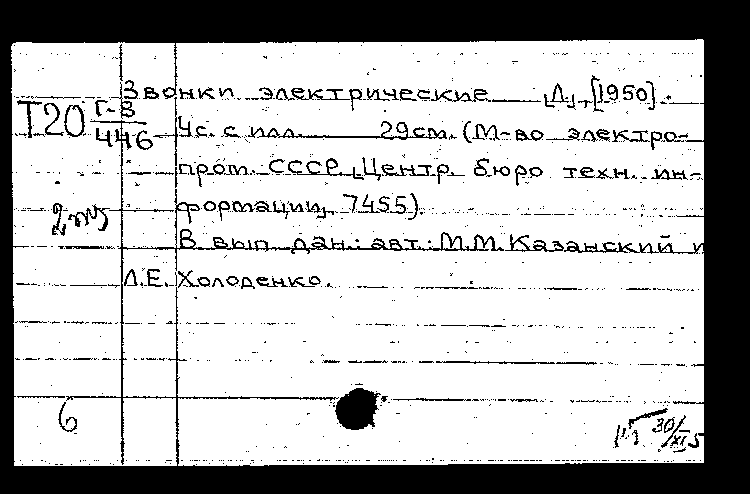 Звонки электрические [Л.], [1950].
Т20 Г-8/446
4с. с илл. 29см. (М-во электро-
пром. СССР. [Центр. бюро техн. ин-
формации], 7455).
В вып. дан.: авт.: М.М. Казанский и
Л.Е. Холоденко.
6
30/XI 5